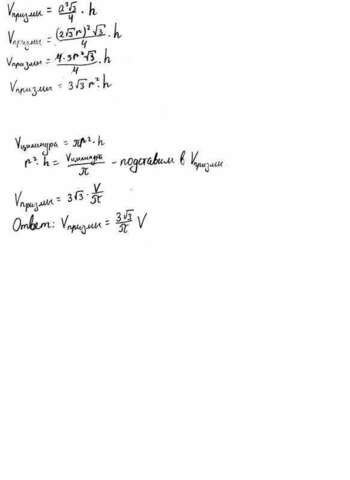 Vпризмы = a²√3/4 · h
Vпризмы = (2√3 r)²√3/4 · h
Vпризмы = 4·3r²√3/4 · h
Vпризмы = 3√3 r² · h
Vцилиндра = πr² · h
r² · h = Vцилиндра/π - подставим в Vпризмы
Vпризмы = 3√3 · V/π
Ответ: Vпризмы = 3√3/π V